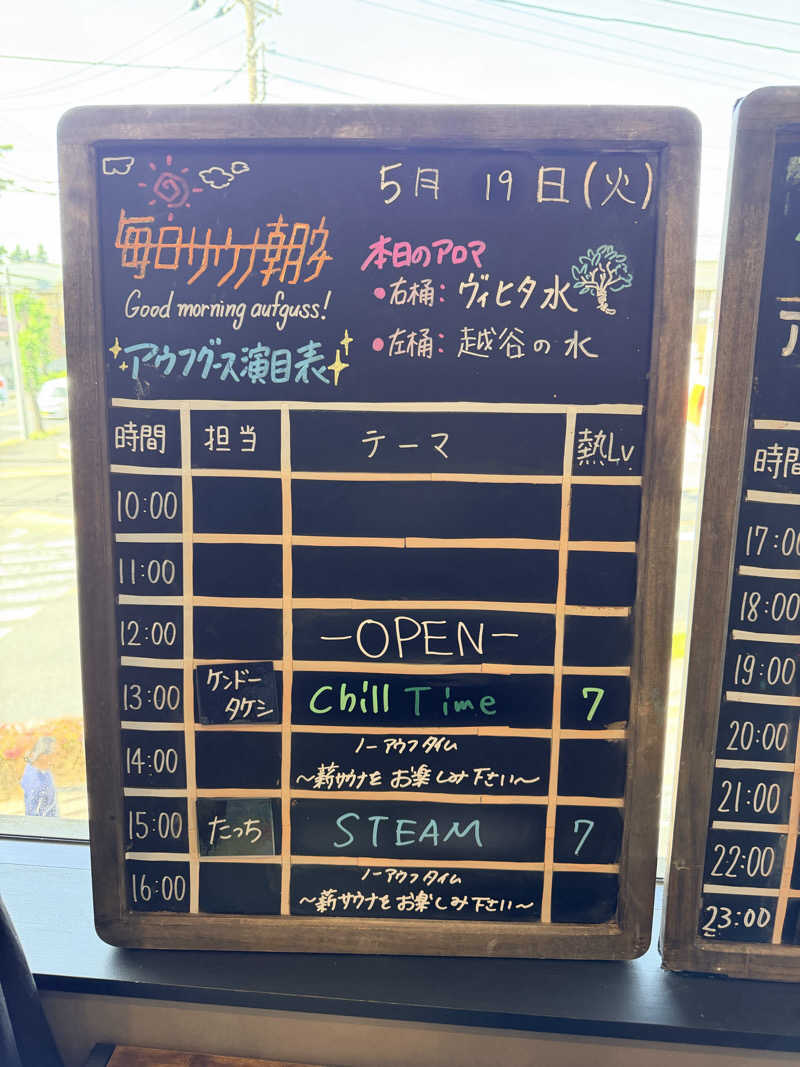 5月 19日(火)
毎日サウナ朝夕
Good morning aufguss!
アウフグース演目表
本日のアロマ
•右桶: ヴィヒタ水
•左桶: 越谷の水
時間 担当 テーマ 熱Lv
10:00
11:00
12:00 -OPEN-
13:00 ケンドータケシ Chill Time 7
14:00 ノーアウフタイム
~薪サウナをお楽しみ下さい~
15:00 たっち STEAM 7
16:00 ノーアウフタイム
~薪サウナをお楽しみ下さい~
時間
17:00
18:00
19:00
20:00
21:00
22:00
23:00